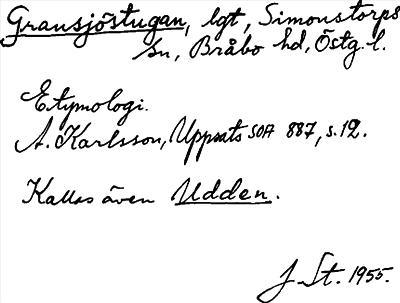 Gransjöstugan, lgt, Simonstorps
sn, Bråbo hd, Östg. l.
Etymologi.
A. Karlsson, Uppsats SOA 887, s. 12.
Kallas även Udden.
J St. 1955.